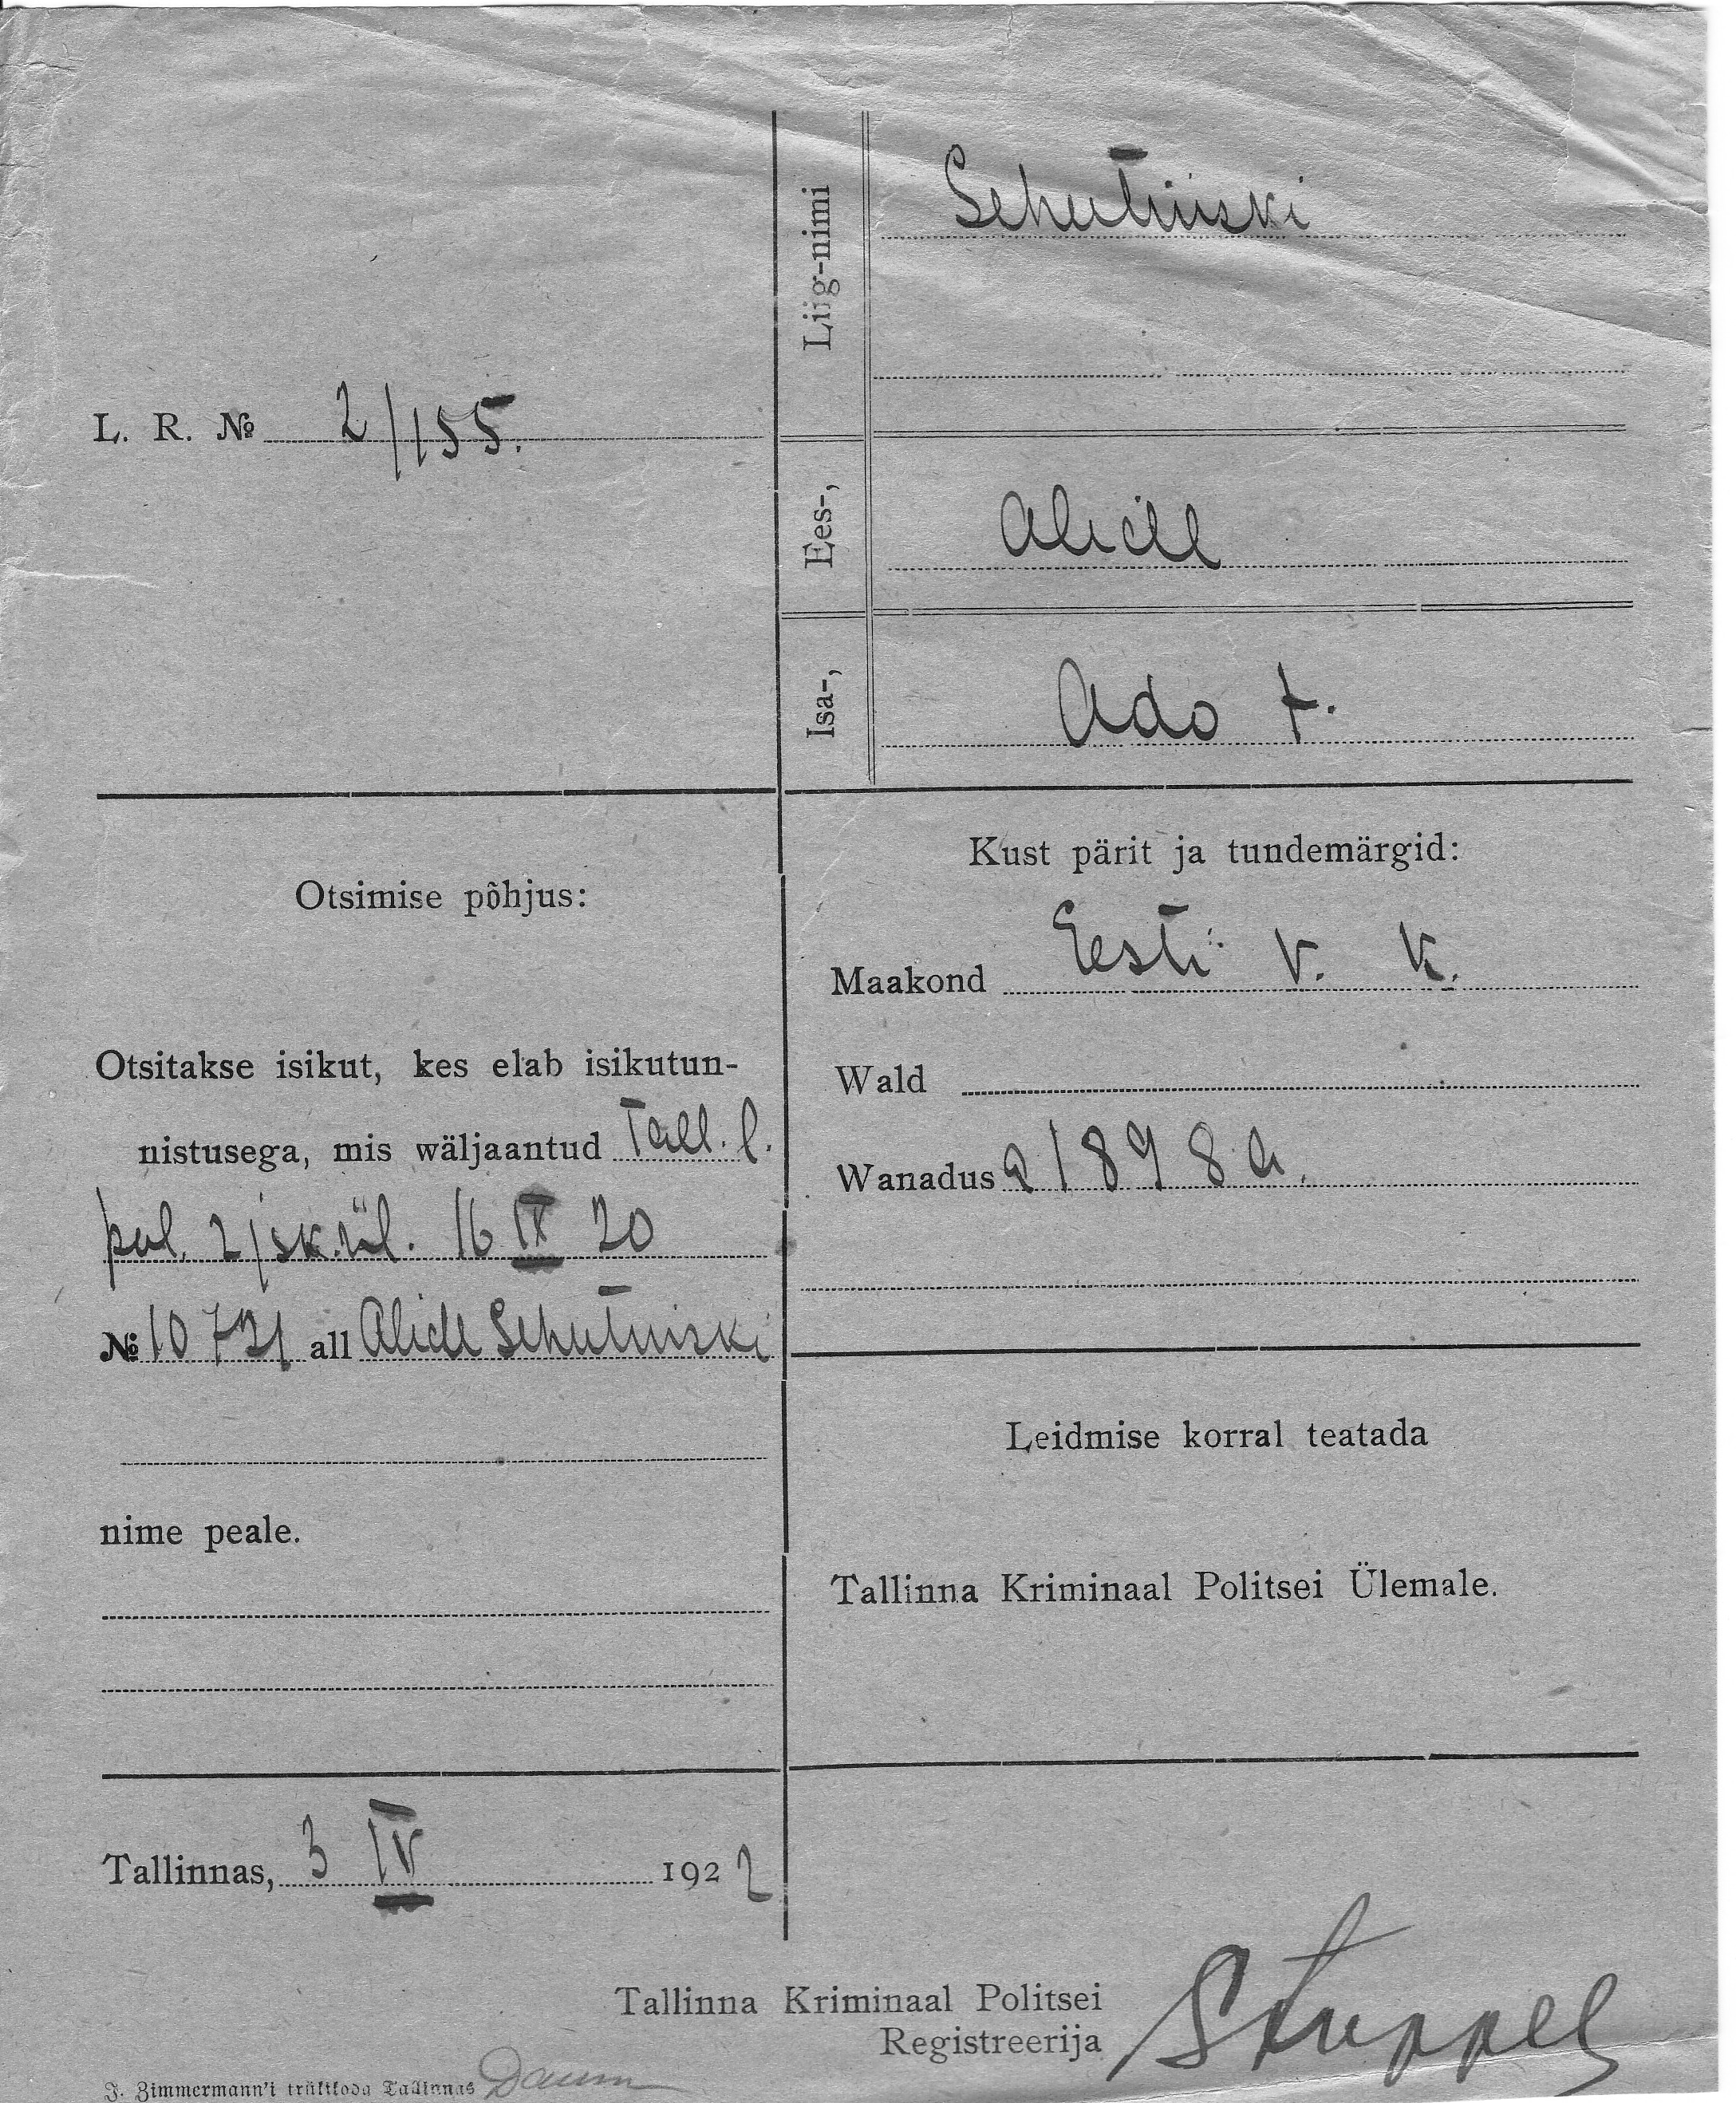 Liig-nimi Schutinski
L. R. № 2/155.
Ees-, Alide
Isa-, Ado t.
Otsimise põhjus:
Otsitakse isikut, kes elab isikutun-
nistusega, mis wäljaantud Tall. l.
pol. 2 jsk. ül. 16 IX 20
№ 10721 all Alide Schutinski
nime peale.
Kust pärit ja tundemärgid:
Maakond Eesti V. K.
Wald
Wanadus 1898 a.
Leidmise korral teatada
Tallinna Kriminaal Politsei Ülemale.
Tallinnas, 3 IV 1922
Tallinna Kriminaal Politsei
Registreerija Stuppel
J. Zimmermann'i trükikoda Tallinnas